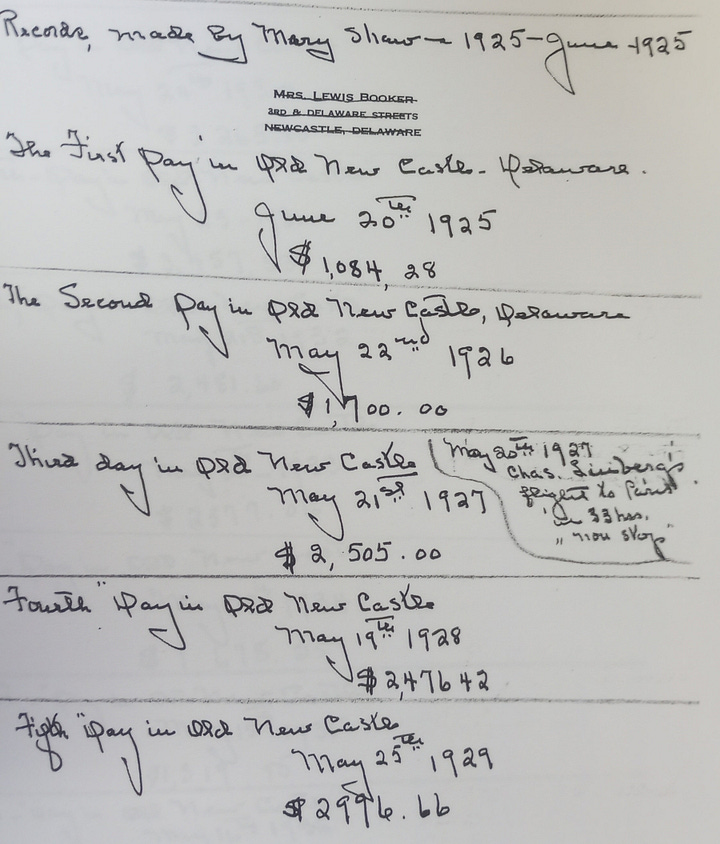 Records, made by Mary Shaw - 1925 - June - 1925
MRS. LEWIS BOOKER
3RD & DELAWARE STREETS
NEWCASTLE, DELAWARE
The First "Day" in Old New Castle - Delaware.
June 20th 1925
$ 1,084, 28
The Second Day in Old New Castle, Delaware
May 22nd 1926
$ 1,700.00
Third day in Old New Castle
May 21st 1927
$ 2,505.00
May 20th 1927
Chas. Linberg's
flight to Paris
in 33 hrs.
"non stop"
Fourth "Day in Old New Castle
May 19th 1928
$ 2,476 42
Fifth "Day in Old New Castle
May 25th 1929
$ 2996.66